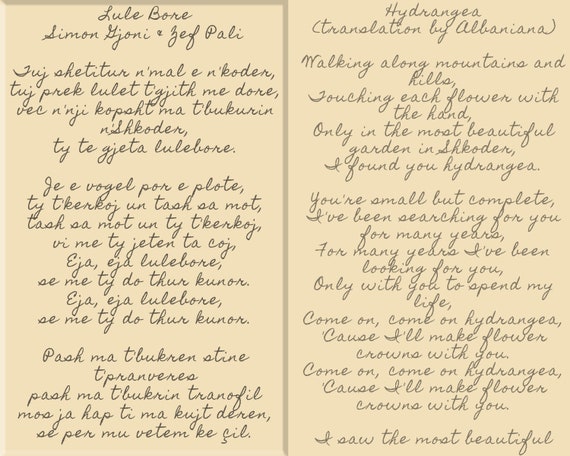 Lule Bore
Simon Gjoni & Zef Pali
Tuj shetitur n'mal e n'koder,
tuj prek lulet t'gjith me dore,
vec n'nji kopsht ma t'bukurin
n'Shkoder,
ty te gjeta lulebore.
Je e vogel por e plote,
ty t'kerkoj un tash sa mot,
tash sa mot un ty t'kerkoj,
vi me ty jeten ta coj,
Eja, eja lulebore,
se me ty do thur kunor.
Eja, eja lulebore,
se me ty do thur kunor.
Pash ma t'bukren stine
t'pranveres
pash ma t'bukrin tranofil
mos ja hap ti ma kujt deren,
se per mu vetem ke çil.
Hydrangea
(translation by Albaniana)
Walking along mountains and
hills,
Touching each flower with
the hand,
Only in the most beautiful
garden in Shkoder,
I found you hydrangea.
You're small but complete,
I've been searching for you
for many years,
For many years I've been
looking for you,
Only with you to spend my
life,
Come on, come on hydrangea,
'Cause I'll make flower
crowns with you.
Come on, come on hydrangea,
'Cause I'll make flower
crowns with you.
I saw the most beautiful